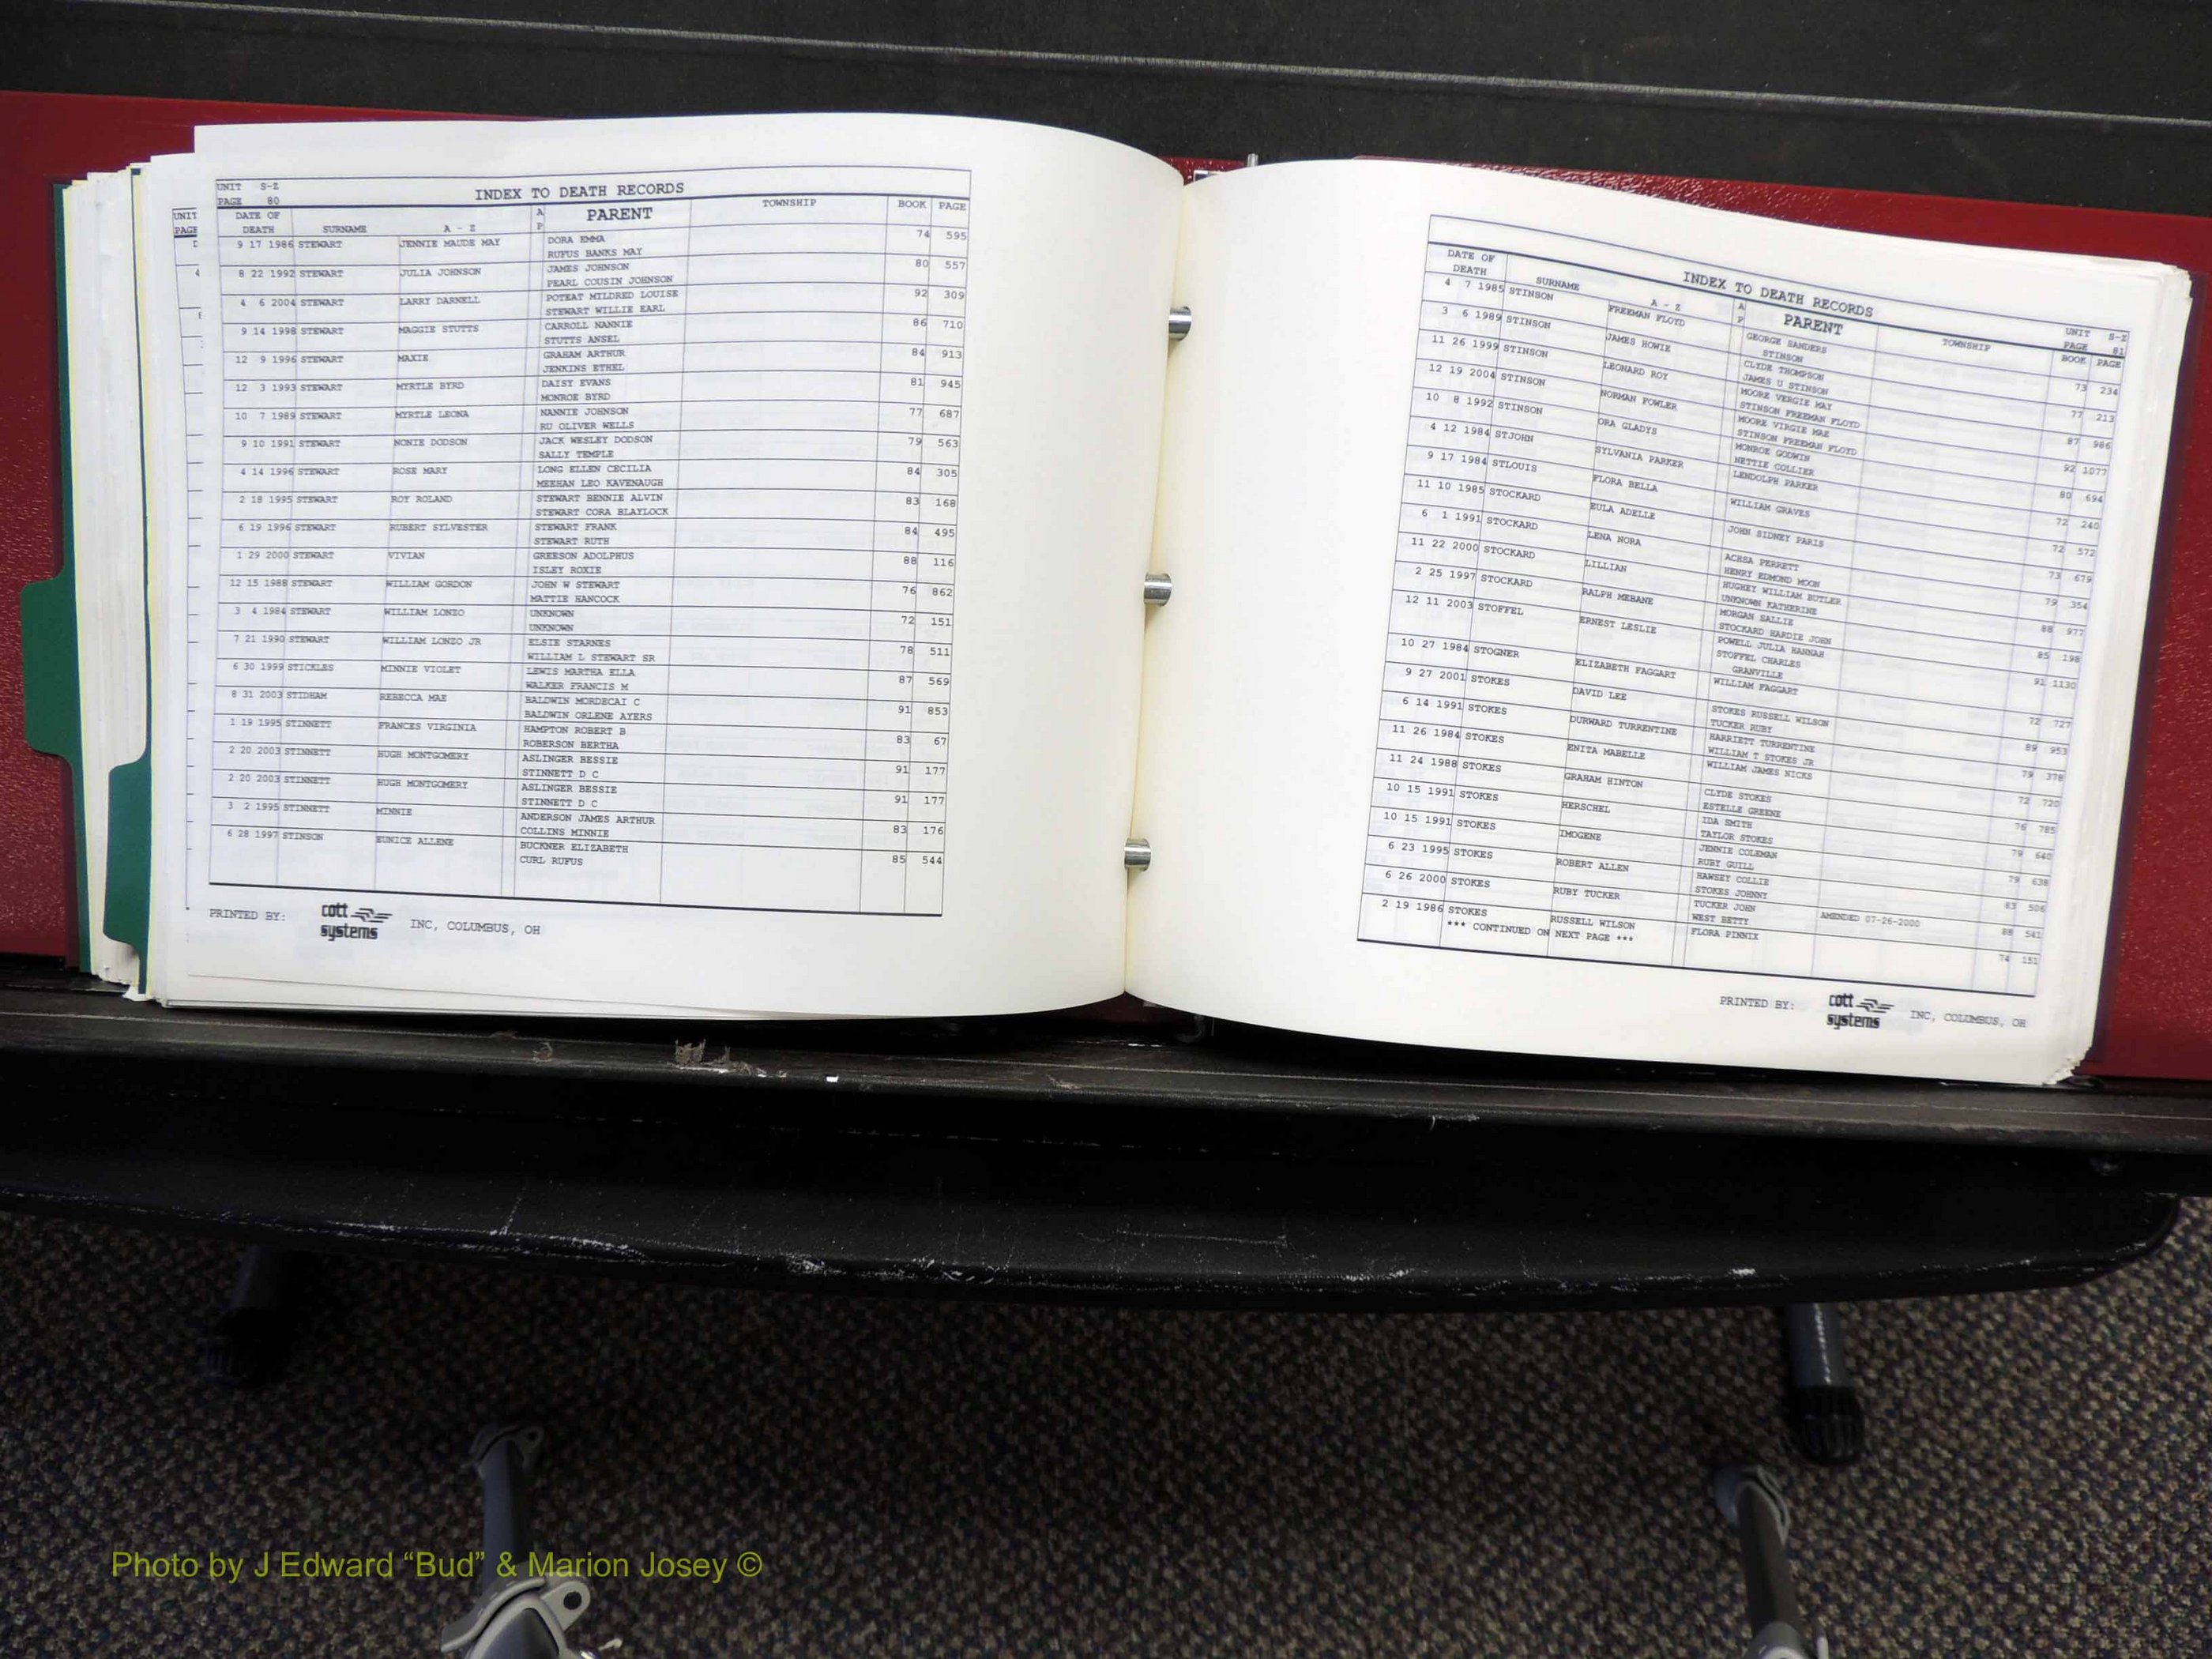 UNIT S-Z
PAGE 80
INDEX TO DEATH RECORDS
DATE OF DEATH SURNAME A - Z AP PARENT TOWNSHIP BOOK PAGE
9 17 1986 STEWART JENNIE MAUDE MAY DORA EMMA 74 595
RUFUS BANKS MAY
8 22 1992 STEWART JULIA JOHNSON JAMES JOHNSON 80 557
PEARL COUSIN JOHNSON
4 6 2004 STEWART LARRY DARNELL POTEAT MILDRED LOUISE 92 309
STEWART WILLIE EARL
9 14 1998 STEWART MAGGIE STUTTS CARROLL NANNIE 86 710
STUTTS ANSEL
12 9 1996 STEWART MAXIE GRAHAM ARTHUR 84 913
JENKINS ETHEL
12 3 1993 STEWART MYRTLE BYRD DAISY EVANS 81 945
MONROE BYRD
10 7 1989 STEWART MYRTLE LEONA NANNIE JOHNSON 77 687
RU OLIVER WELLS
9 10 1991 STEWART NONIE DODSON JACK WESLEY DODSON 79 563
SALLY TEMPLE
4 14 1996 STEWART ROSE MARY LONG ELLEN CECILIA 84 305
MEEHAN LEO KAVENAUGH
2 18 1995 STEWART ROY ROLAND STEWART BENNIE ALVIN 83 168
STEWART CORA BLAYLOCK
6 19 1996 STEWART RUBERT SYLVESTER STEWART FRANK 84 495
STEWART RUTH
1 29 2000 STEWART VIVIAN GREESON ADOLPHUS 88 116
ISLEY ROXIE
12 15 1988 STEWART WILLIAM GORDON JOHN W STEWART 76 862
MATTIE HANCOCK
3 4 1984 STEWART WILLIAM LONZO UNKNOWN 72 151
UNKNOWN
7 21 1990 STEWART WILLIAM LONZO JR ELSIE STARNES 78 511
WILLIAM L STEWART SR
6 30 1999 STICKLES MINNIE VIOLET LEWIS MARTHA ELLA 87 569
WALKER FRANCIS M
8 31 2003 STIDHAM REBECCA MAE BALDWIN MORDECAI C 91 853
BALDWIN ORLENE AYERS
1 19 1995 STINNETT FRANCES VIRGINIA HAMPTON ROBERT B 83 67
ROBERSON BERTHA
2 20 2003 STINNETT HUGH MONTGOMERY ASLINGER BESSIE 91 177
STINNETT D C
2 20 2003 STINNETT HUGH MONTGOMERY ASLINGER BESSIE 91 177
STINNETT D C
3 2 1995 STINNETT MINNIE ANDERSON JAMES ARTHUR 83 176
COLLINS MINNIE
6 28 1997 STINSON EUNICE ALLENE BUCKNER ELIZABETH 85 544
CURL RUFUS
PRINTED BY: cott systems INC, COLUMBUS, OH
INDEX TO DEATH RECORDS
UNIT S-Z
PAGE 81
DATE OF DEATH SURNAME A - Z AP PARENT TOWNSHIP BOOK PAGE
4 7 1985 STINSON FREEMAN FLOYD GEORGE SANDERS 73 234
STINSON
3 6 1989 STINSON JAMES HOWIE CLYDE THOMPSON 77 213
JAMES U STINSON
11 26 1999 STINSON LEONARD ROY MOORE VERGIE MAY 87 986
STINSON FREEMAN FLOYD
12 19 2004 STINSON NORMAN FOWLER MOORE VIRGIE MAE 92 1077
STINSON FREEMAN FLOYD
10 8 1992 STINSON ORA GLADYS MONROE GODWIN 80 694
NETTIE COLLIER
4 12 1984 STJOHN SYLVANIA PARKER LENDOLPH PARKER 72 240
9 17 1984 STLOUIS FLORA BELLA WILLIAM GRAVES 72 572
11 10 1985 STOCKARD EULA ADELLE JOHN SIDNEY PARIS 73 679
6 1 1991 STOCKARD LENA NORA ACHSA PERRETT 79 354
HENRY EDMOND MOON
11 22 2000 STOCKARD LILLIAN HUGHEY WILLIAM BUTLER 88 977
UNKNOWN KATHERINE
2 25 1997 STOCKARD RALPH MEBANE MORGAN SALLIE 85 198
STOCKARD HARDIE JOHN
12 11 2003 STOFFEL ERNEST LESLIE POWELL JULIA HANNAH 91 1130
STOFFEL CHARLES
GRANVILLE
10 27 1984 STOGNER ELIZABETH FAGGART WILLIAM FAGGART 72 727
9 27 2001 STOKES DAVID LEE STOKES RUSSELL WILSON 89 953
TUCKER RUBY
6 14 1991 STOKES DURWARD TURRENTINE HARRIETT TURRENTINE 79 378
WILLIAM T STOKES JR
11 26 1984 STOKES ENITA MABELLE WILLIAM JAMES NICKS 72 720
11 24 1988 STOKES GRAHAM HINTON CLYDE STOKES 76 785
ESTELLE GREENE
10 15 1991 STOKES HERSCHEL IDA SMITH 79 640
TAYLOR STOKES
10 15 1991 STOKES IMOGENE JENNIE COLEMAN 79 638
RUBY GUILL
6 23 1995 STOKES ROBERT ALLEN HAWSEY COLLIE 83 506
STOKES JOHNNY
6 26 2000 STOKES RUBY TUCKER TUCKER JOHN AMENDED 07-26-2000 88 541
WEST BETTY
2 19 1986 STOKES RUSSELL WILSON FLORA PINNIX 74 151
*** CONTINUED ON NEXT PAGE ***
PRINTED BY: cott systems INC, COLUMBUS, OH
Photo by J Edward “Bud” & Marion Josey ©